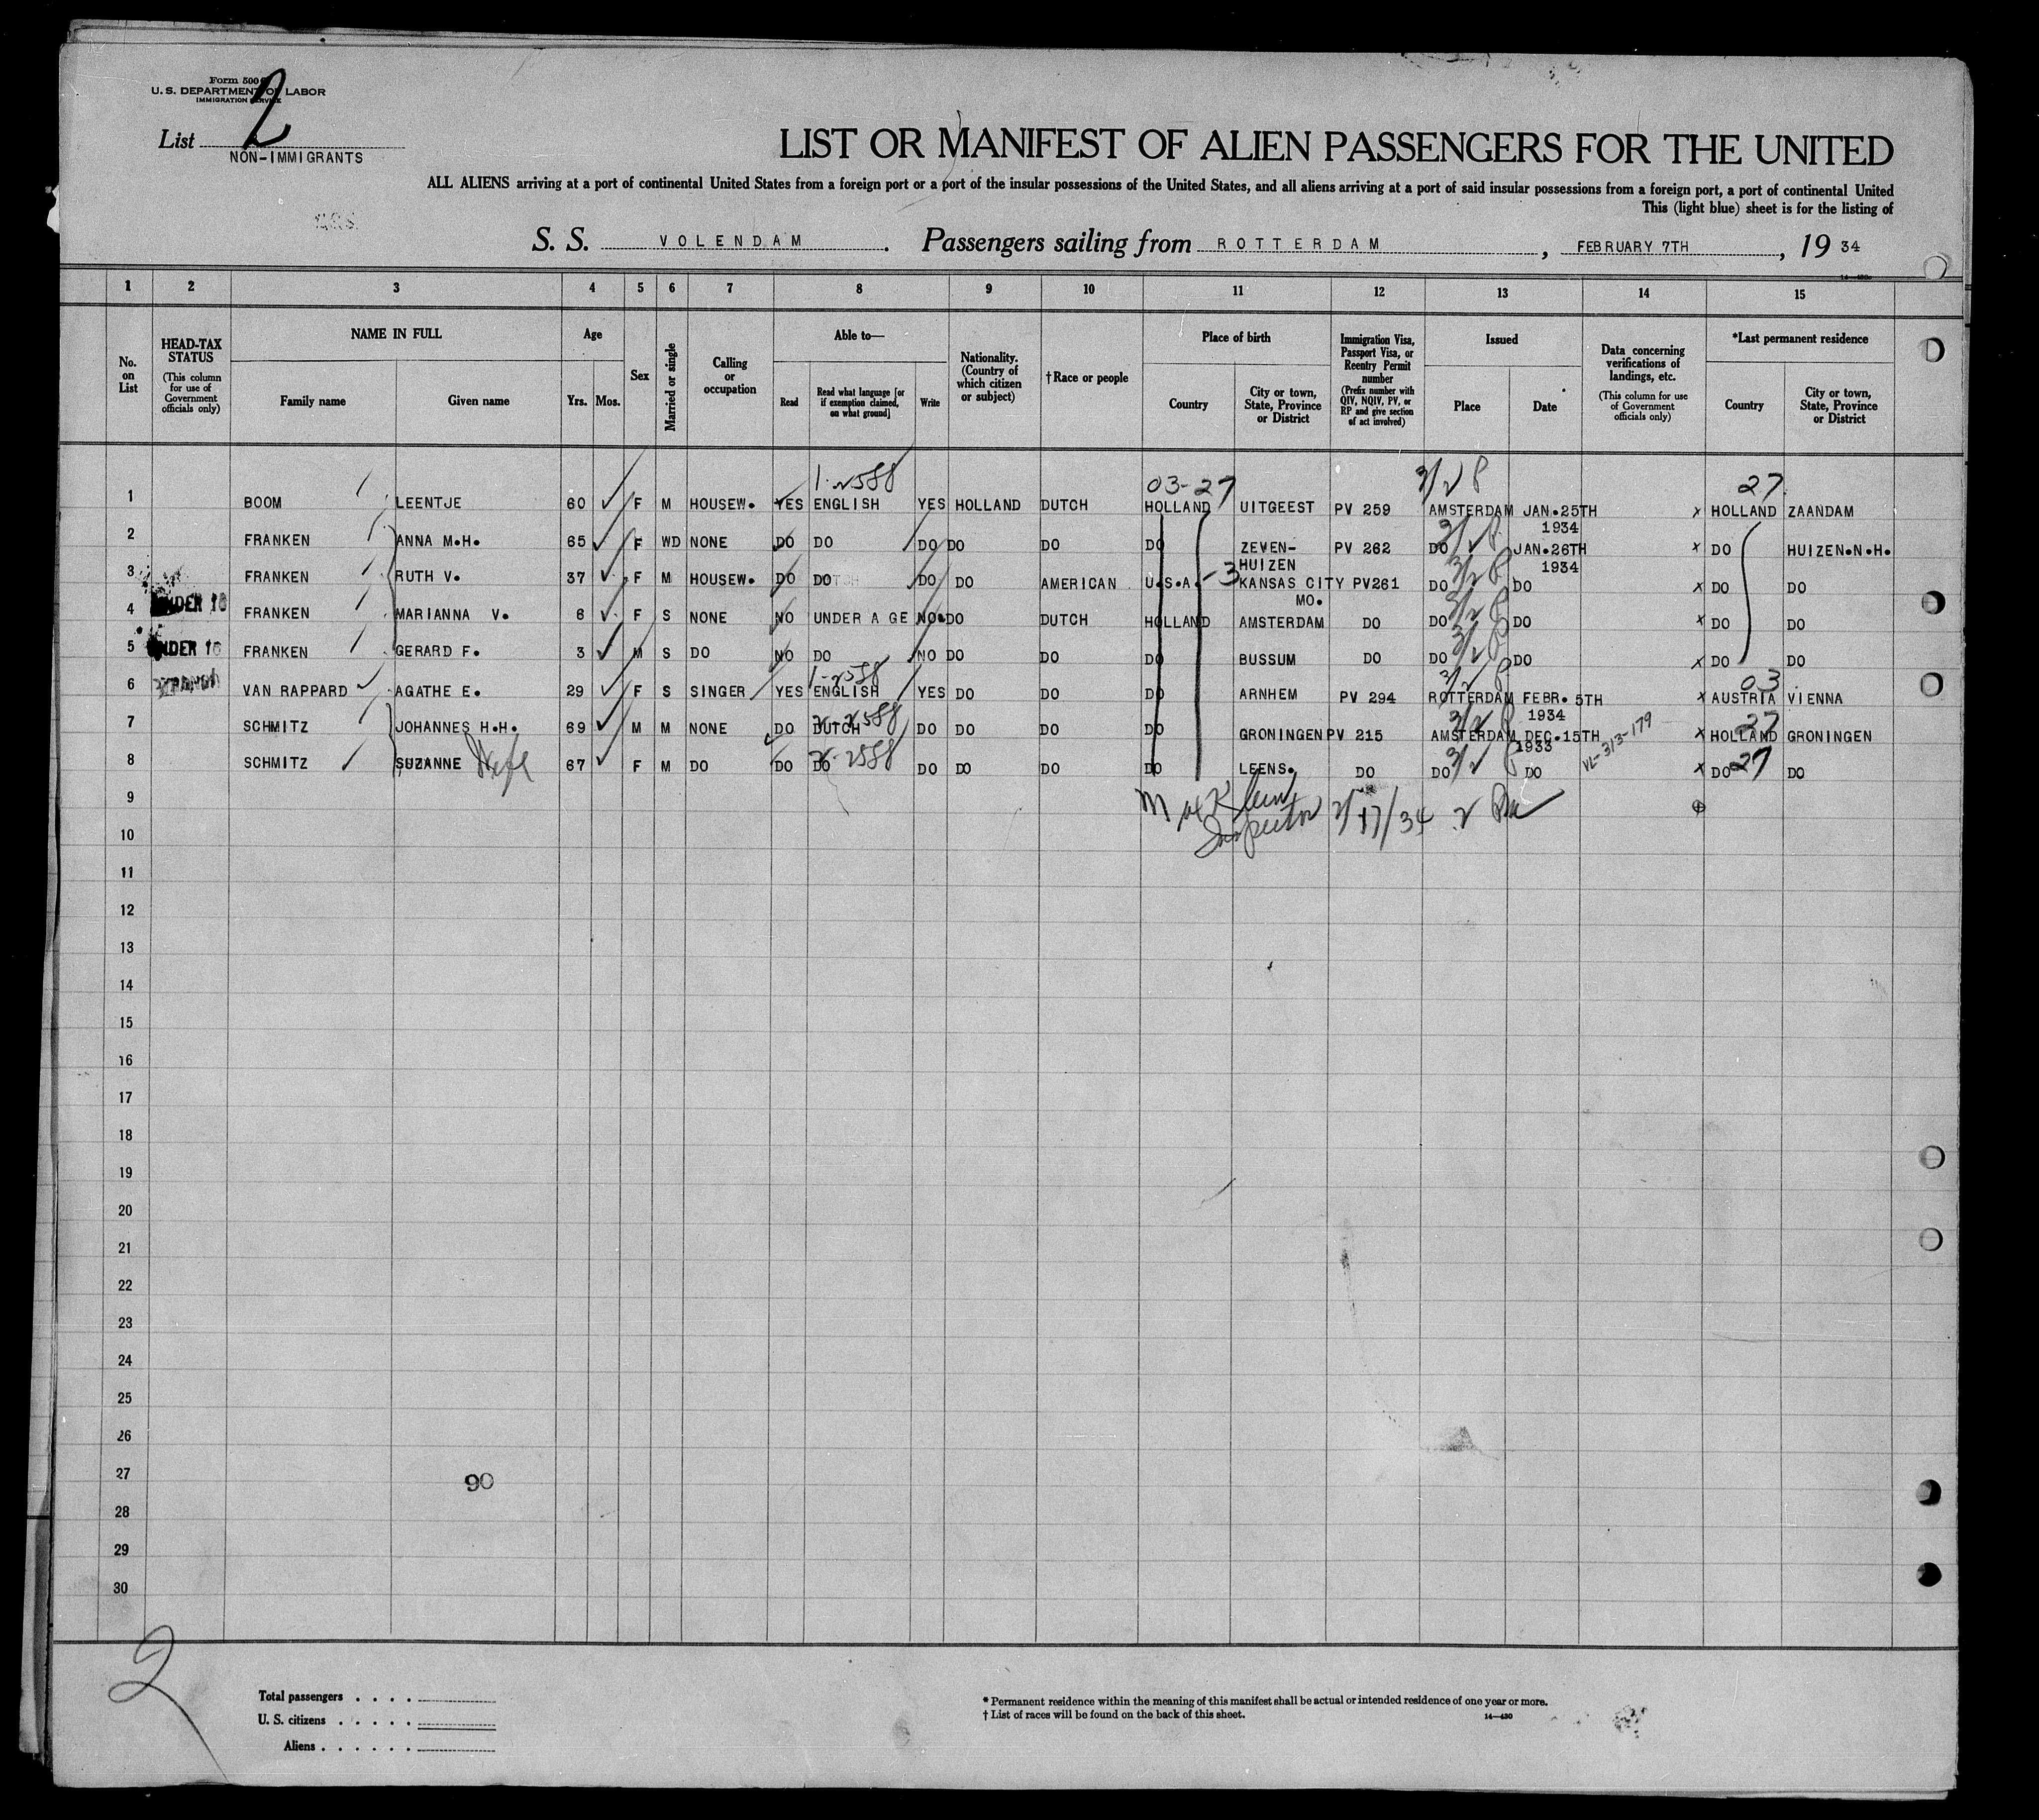 Form 500
U. S. DEPARTMENT OF LABOR
IMMIGRATION SERVICE
List 2
NON-IMMIGRANTS
LIST OR MANIFEST OF ALIEN PASSENGERS FOR THE UNITED
ALL ALIENS arriving at a port of continental United States from a foreign port or a port of the insular possessions of the United States, and all aliens arriving at a port of said insular possessions from a foreign port, a port of continental United
This (light blue) sheet is for the listing of
S. S. VOLENDAM. Passengers sailing from ROTTERDAM, FEBRUARY 7TH, 19 34
1 2 3 4 5 6 7 8 9 10 11 12 13 14 15
No. on List
HEAD-TAX STATUS (This column for use of Government officials only)
NAME IN FULL
Family name
Given name
Age
Yrs.
Mos.
Sex
Married or single
Calling or occupation
Able to—
Read
Read what language [or if exemption claimed, on what ground]
Write
Nationality. (Country of which citizen or subject)
†Race or people
Place of birth
Country
City or town, State, Province or District
Immigration Visa, Passport Visa, or Reentry Permit number (Prefix number with QIV, NQIV, PV, or RP and give section of act involved)
Issued
Place
Date
Data concerning verifications of landings, etc. (This column for use of Government officials only)
*Last permanent residence
Country
City or town, State, Province or District
1-2588 03-27 27
1 BOOM LEENTJE 60 F M HOUSEW. YES ENGLISH YES HOLLAND DUTCH HOLLAND UITGEEST PV 259 AMSTERDAM JAN.25TH 1934 x HOLLAND ZAANDAM
2 FRANKEN ANNA M.H. 65 F WD NONE DO DO DO DO DO DO ZEVEN-HUIZEN PV 262 DO JAN.26TH 1934 x DO HUIZEN.N.H.
3 FRANKEN RUTH V. 37 F M HOUSEW. DO DO DO DO AMERICAN U.S.A. -3 KANSAS CITY MO. PV261 DO DO x DO DO
4 UNDER 16 FRANKEN MARIANNA V. 6 F S NONE NO UNDER A GE NO DO DUTCH HOLLAND AMSTERDAM DO DO DO x DO DO
5 UNDER 16 FRANKEN GERARD F. 3 M S DO NO DO NO DO DO DO BUSSUM DO DO DO x DO DO
1-2588 03
6 VAN RAPPARD AGATHE E. 29 F S SINGER YES ENGLISH YES DO DO DO ARNHEM PV 294 ROTTERDAM FEBR.5TH 1934 x AUSTRIA VIENNA
7 SCHMITZ JOHANNES H.H. 69 M M NONE DO DUTCH DO DO DO DO GRONINGEN PV 215 AMSTERDAM DEC.15TH 1933 VL-313-179 x HOLLAND 27 GRONINGEN
8 SCHMITZ SUZANNE Wife 67 F M DO DO DO DO DO DO DO LEENS. DO DO DO x DO 27 DO
9 Max Klein Inspector 2/17/34
10
11
12
13
14
15
16
17
18
19
20
21
22
23
24
25
26
27 90
28
29
30
2
Total passengers . . . .
U. S. citizens . . . . .
Aliens . . . . . .
* Permanent residence within the meaning of this manifest shall be actual or intended residence of one year or more.
† List of races will be found on the back of this sheet.
14—430